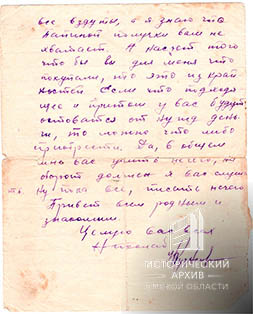 все вздуты, а я знаю что
папиной получки вам не
хватает. А насчет того
что бы вы для меня что
покупали, то это из край
ности. Если что подходя
щее и притом у вас будут
оставатся от нужд день
ги, то можно что либо
приобрести. Да, в общем
мне вас учить нечего, на
оборот должен я вас слуш
Ну пока все, писать нечего
Привет всем родным и
знакомым
Целую вас всех
Николай
ИСТОРИЧЕСКИЙ
АРХИВ
ОМСКОЙ ОБЛАСТИ